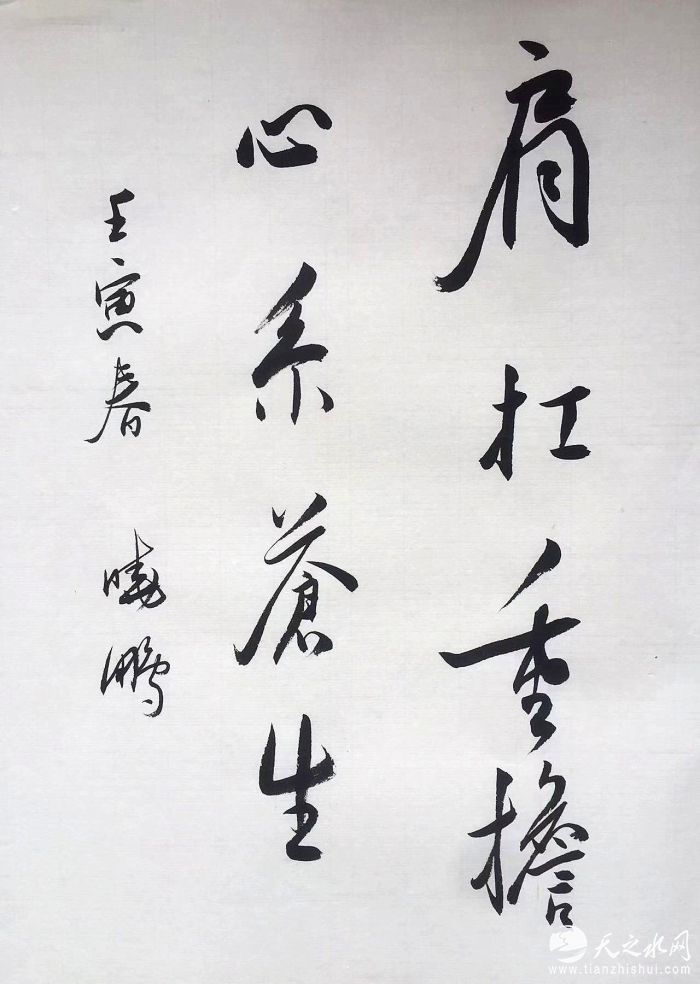 肩扛重擔
心系蒼生
壬寅春 曉鵬
天之水网
www.tianzhishui.com